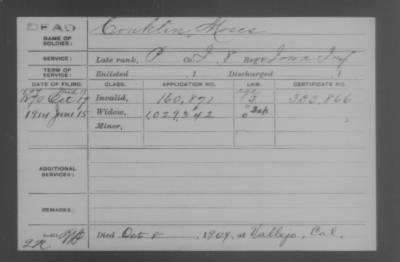 DEAD
Conklin, Moses
NAME OF SOLDIER:
SERVICE: Late rank, P Co. I, 8 Reg't Iowa Inf
TERM OF SERVICE: Enlisted , 1 Discharged , 1
DATE OF FILING. CLASS. APPLICATION NO. LAW. CERTIFICATE NO.
Oct 17 Invalid, 160,871 353,866
1914 June 15 Widow, 1,029,342
Minor,
ADDITIONAL SERVICES:
REMARKS:
Died Oct 8, 1909, at Vallejo, Cal.